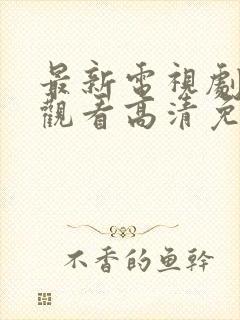 最新電視劇
觀看高清免
不香的鱼幹